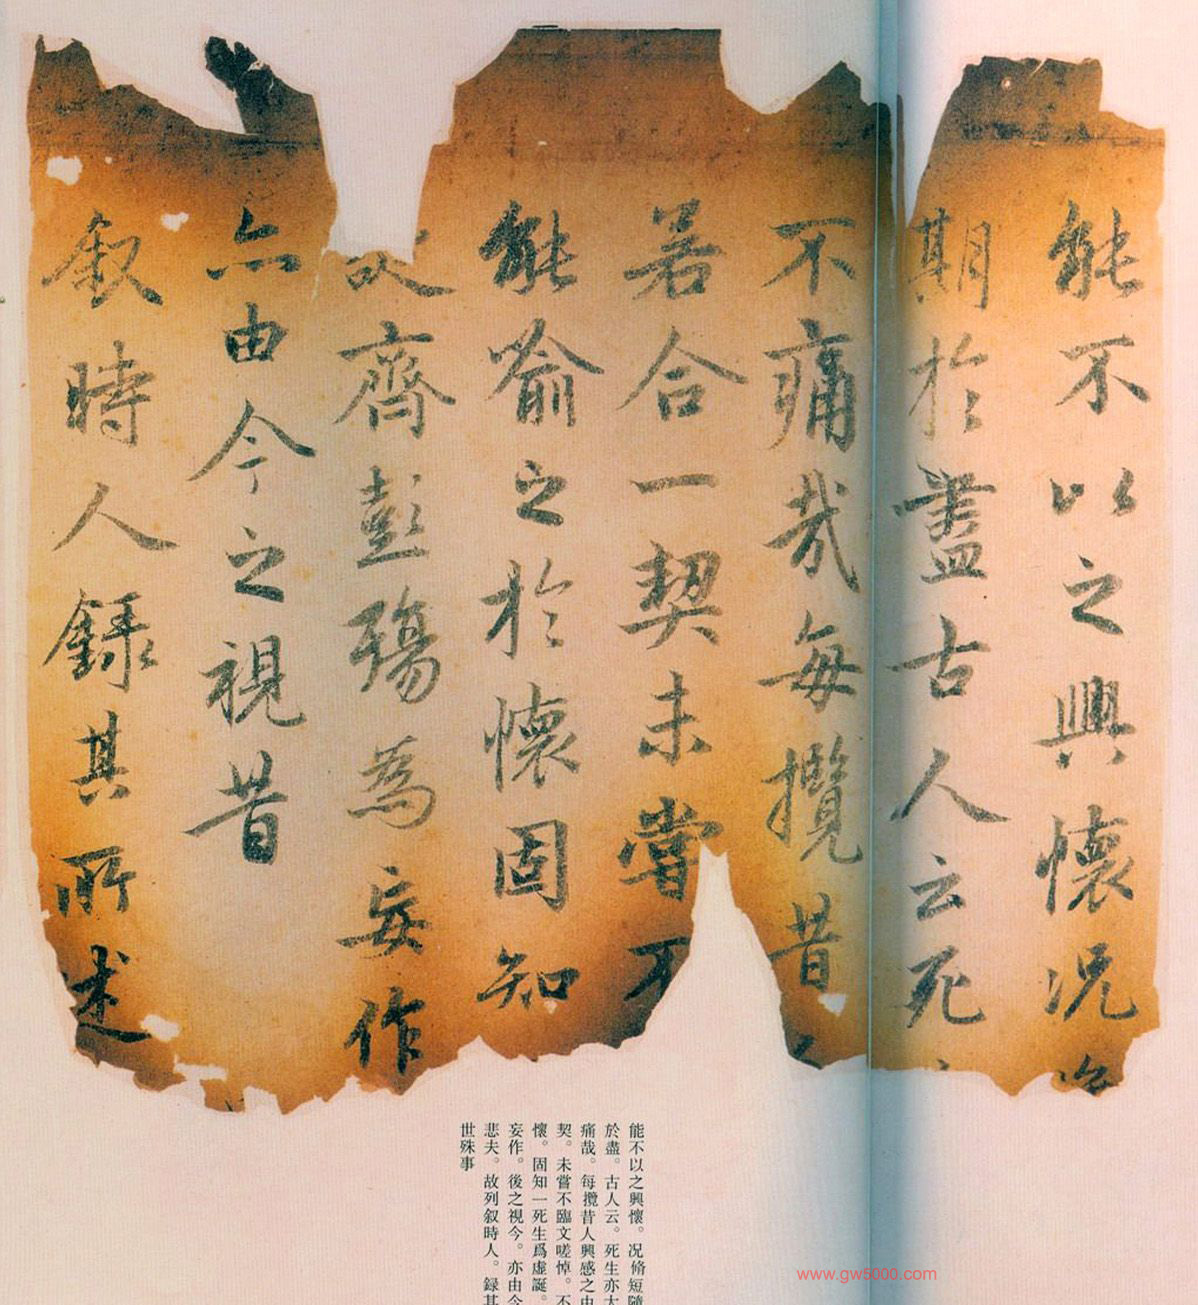 能不以之興懷况
期於盡古人云死
不痛哉每攬昔
若合一契未嘗不
能喻之於懷固知
齊彭殤為妄作
亦由今之視昔
叙時人錄其所述
能不以之興懷。况脩短隨
於盡。古人云。死生亦大
痛哉。每攬昔人興感之由
契。未嘗不臨文嗟悼。不
懷。固知一死生爲虛誕。
妄作。後之視今。亦由今
悲夫。故列叙時人。録其
世殊事
www.gw5000.com